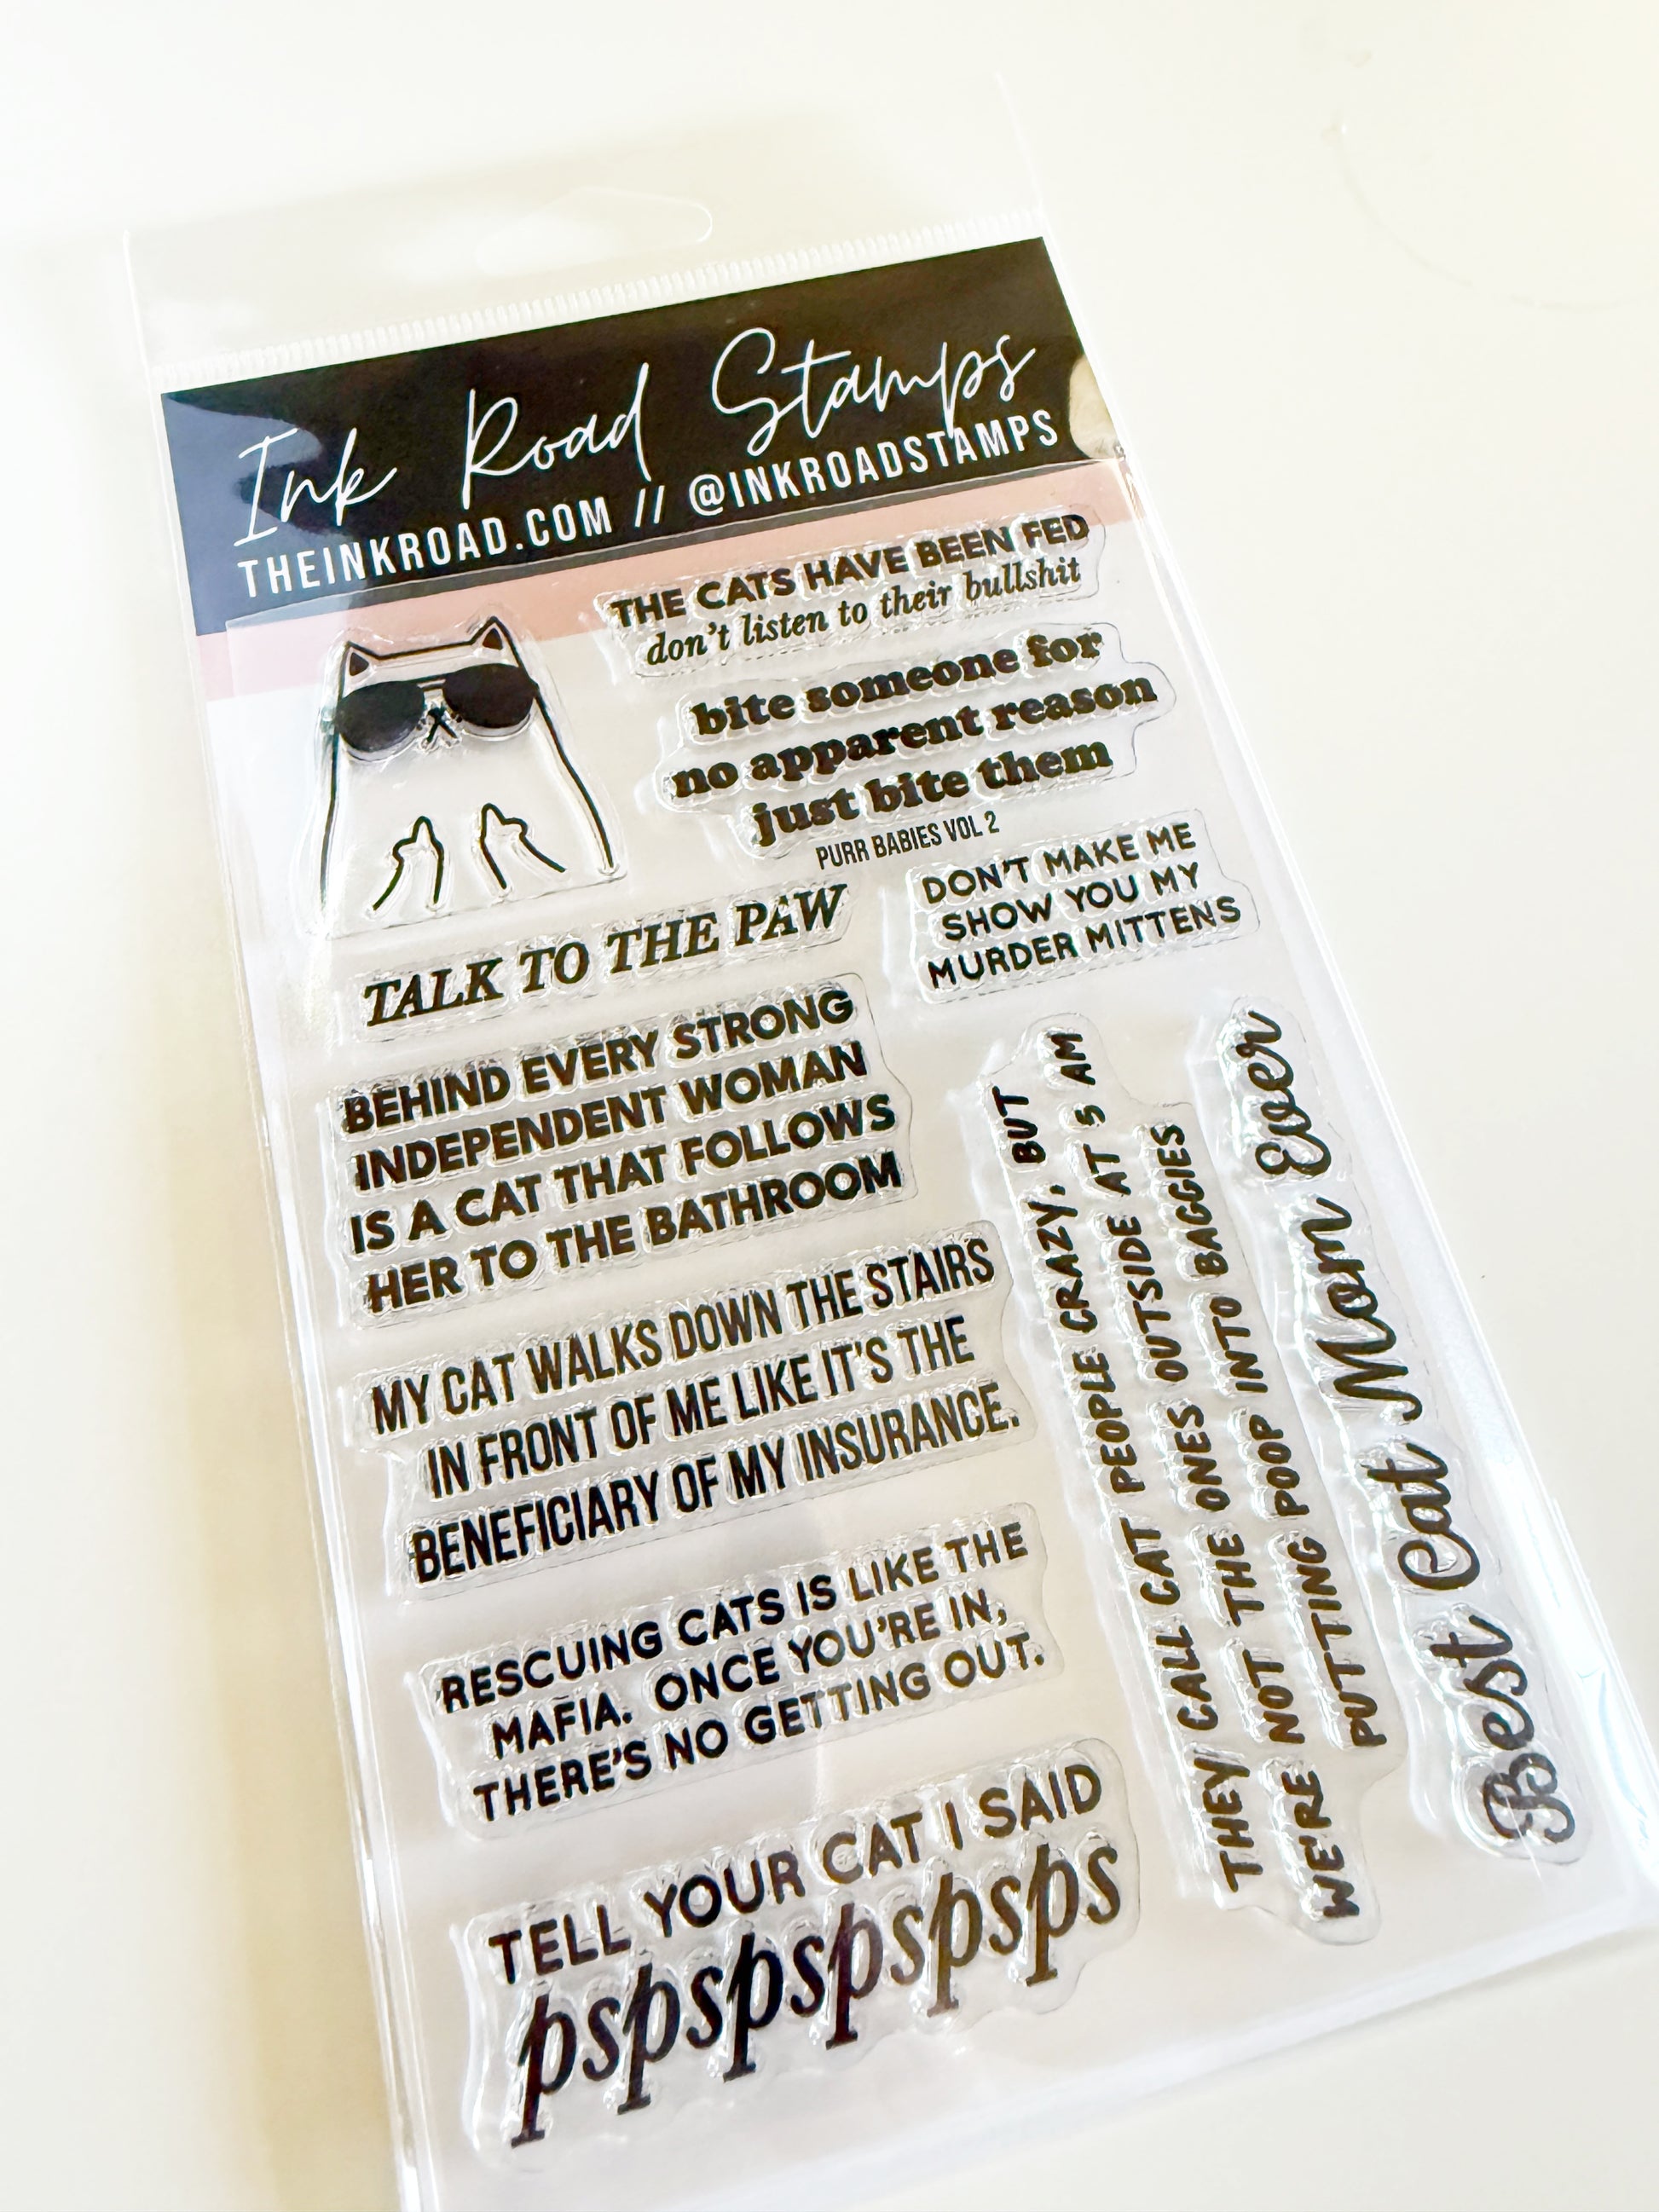 Ink Road Stamps
THEINKROAD.COM // @INKROADSTAMPS
THE CATS HAVE BEEN FED
don't listen to their bullshit
bite someone for
no apparent reason
just bite them
PURR BABIES VOL 2
TALK TO THE PAW
DON'T MAKE ME
SHOW YOU MY
MURDER MITTENS
BEHIND EVERY STRONG
INDEPENDENT WOMAN
IS A CAT THAT FOLLOWS
HER TO THE BATHROOM
MY CAT WALKS DOWN THE STAIRS
IN FRONT OF ME LIKE IT'S THE
BENEFICIARY OF MY INSURANCE.
RESCUING CATS IS LIKE THE
MAFIA. ONCE YOU'RE IN,
THERE'S NO GETTING OUT.
TELL YOUR CAT I SAID
pspspspspsps
THEY CALL CAT PEOPLE CRAZY, BUT
WE'RE NOT THE ONES OUTSIDE AT 5 AM
PUTTING POOP INTO BAGGIES
Best Cat Mom Ever